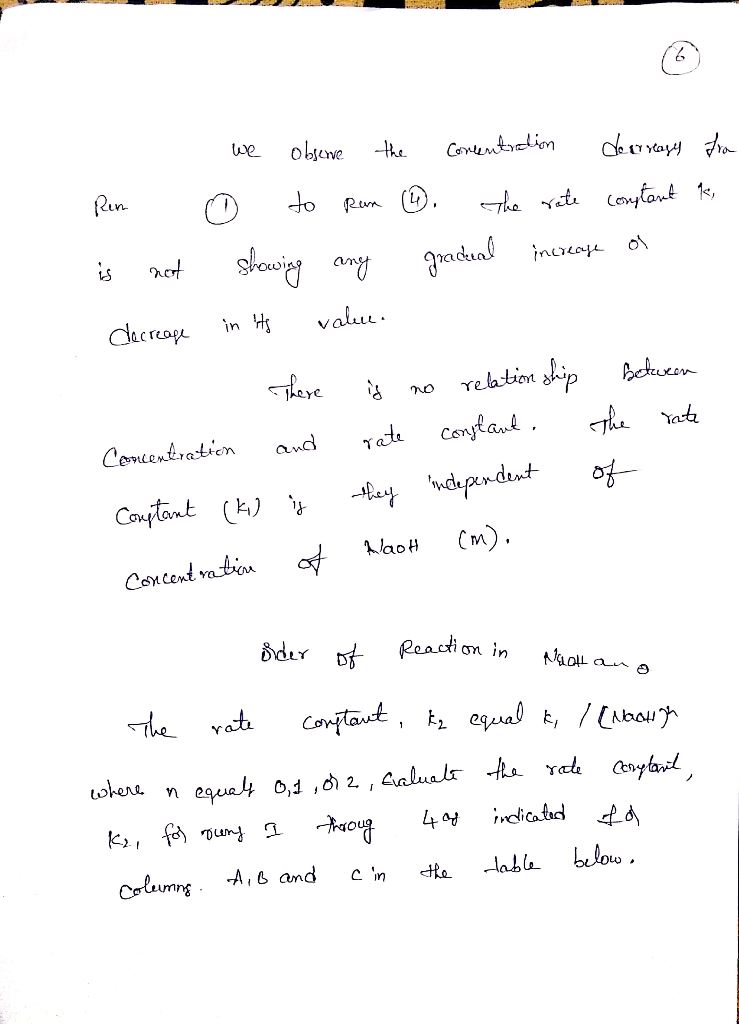 6
we observe the concentration decreases fra
Run ① to Run ④. The rate constant k1
is not showing any gradual increase or
decrease in its value.
There is no relation ship Between
Concentration and rate constant. The rate
Constant (k1) is they independent of
Concentration of NaOH (M).
Order of Reaction in NaOH an
The rate constant, k2 equal k1 / [NaOH]n
where n equals 0,1, or 2, Evaluate the rate constant,
K2, for runs I throug 4 as indicated for
Columns. A, B and C in the table below.